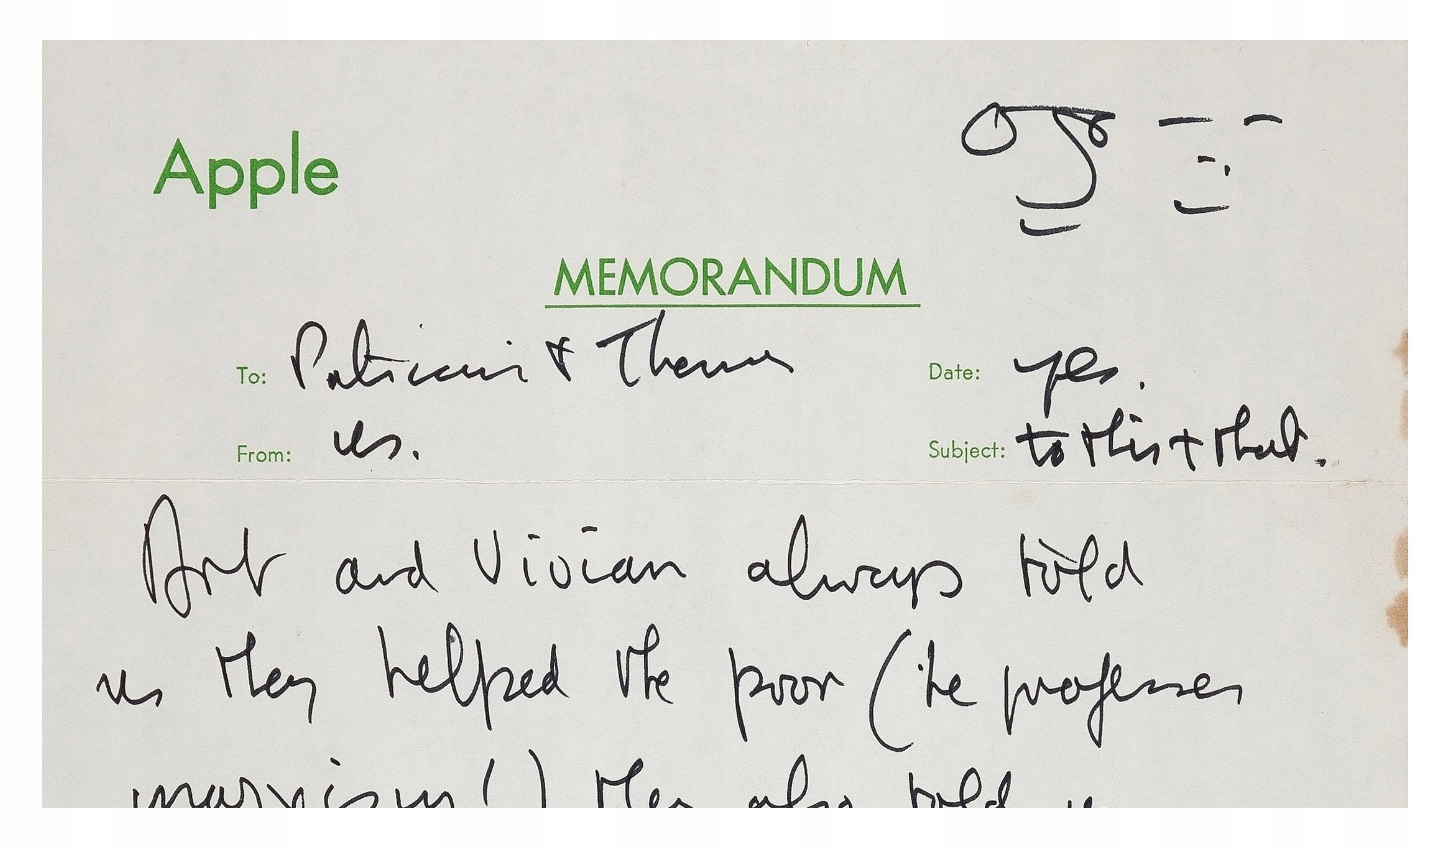 Apple
MEMORANDUM
To: & Date: yes.
From: us. Subject: to this + that.
and Vivian always told
us they helped the poor (he professes
marxism!) they also told us